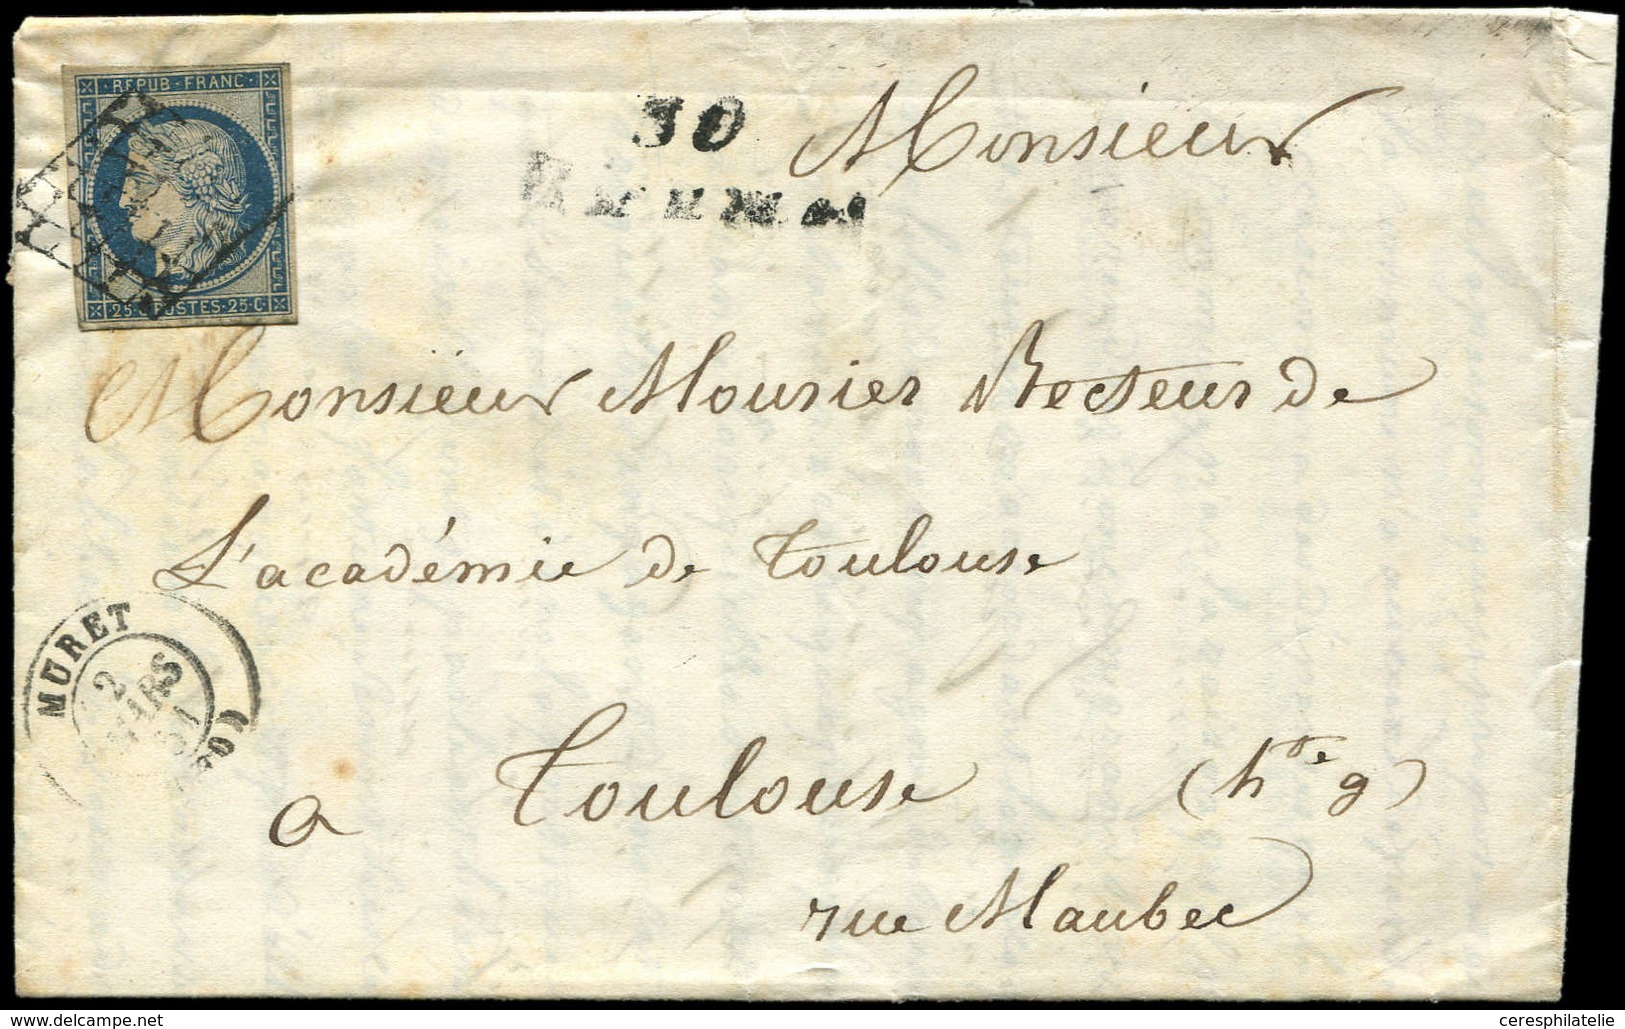 REPUB·FRANC·
25·C POSTES·25·C
30
Monsieur
Monsieur Mourier Recteur de
L'académie de Toulouse
MURET
2
MARS
51
(30)
a Toulouse (hte g)
rue Maubec
www.delcampe.net
ceresphilatelie